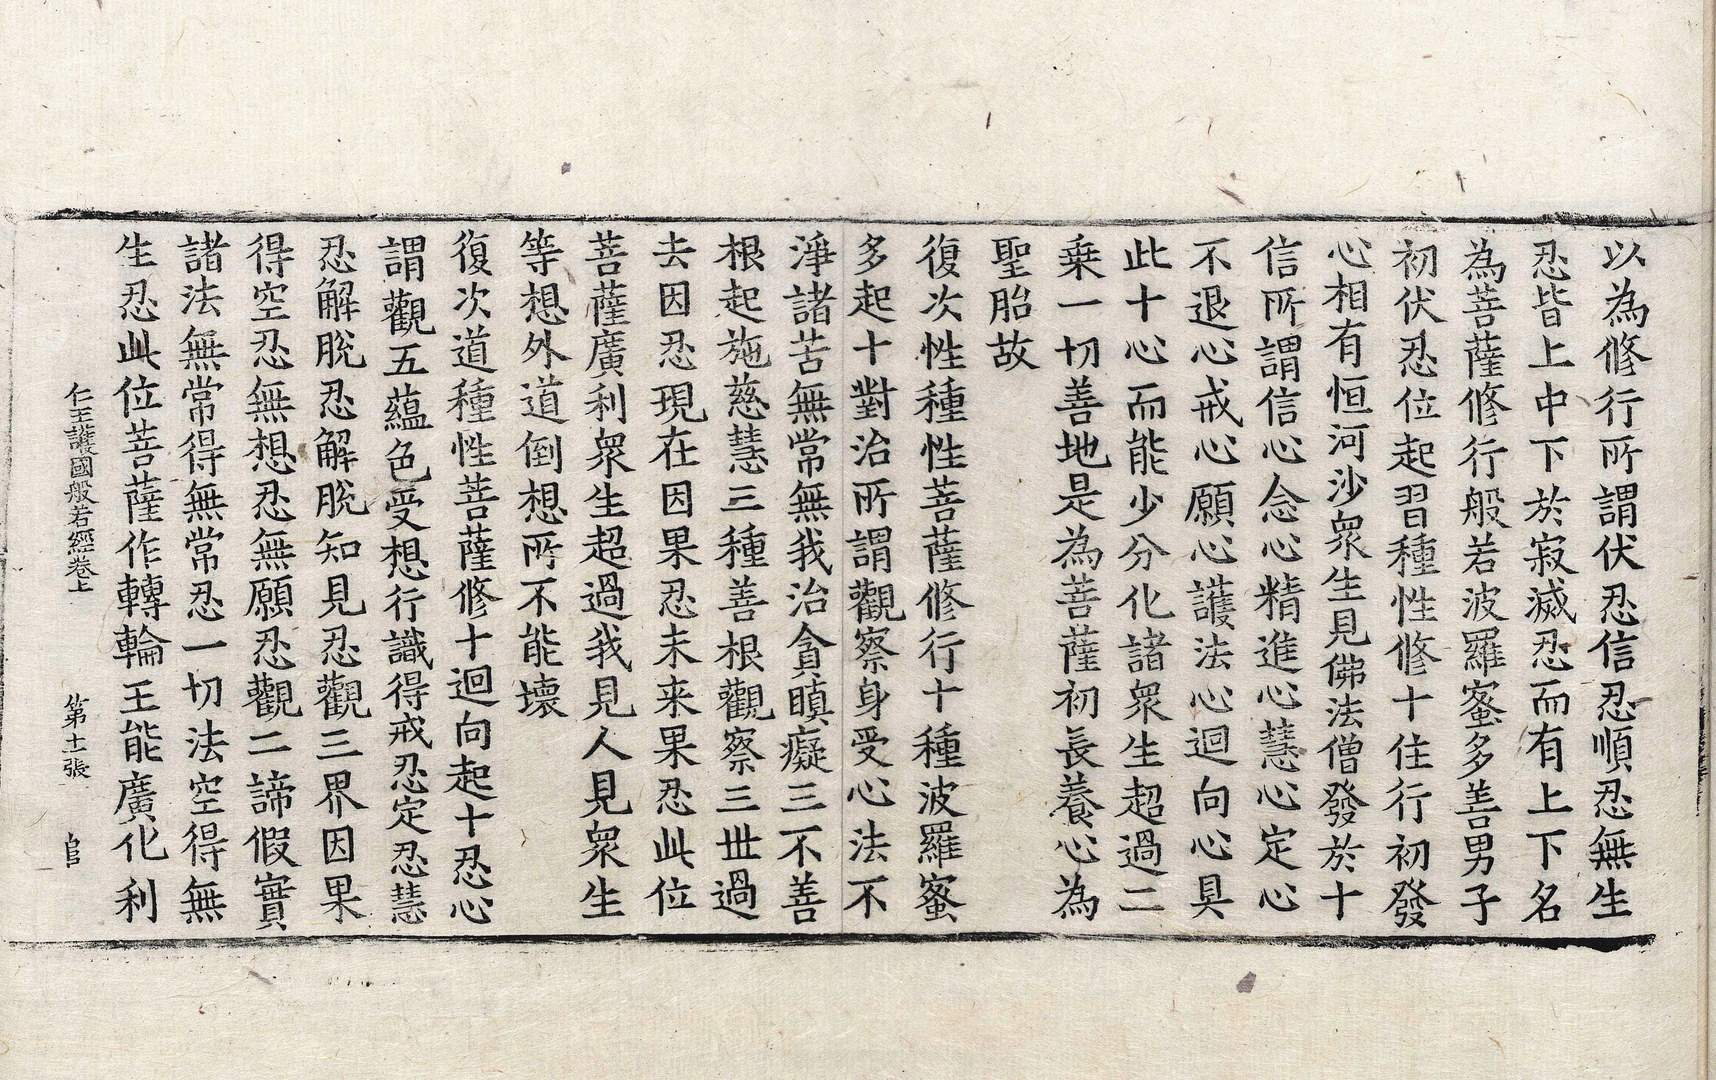 以為修行所謂伏忍信忍順忍無生
忍皆上中下於寂滅忍而有上下名
為菩薩修行般若波羅蜜多善男子
初伏忍位起習種性修十住行初發
心相有恒河沙眾生見佛法僧發於十
信所謂信心念心精進心慧心定心
不退心戒心願心護法心迴向心具
此十心而能少分化諸眾生超過二
乗一切善地是為菩薩初長養心為
聖胎故
復次性種性菩薩修行十種波羅蜜
多起十對治所謂觀察身受心法不
淨諸苦無常無我治貪瞋癡三不善
根起施慈慧三種善根觀察三世過
去因忍現在因果忍未来果忍此位
菩薩廣利眾生超過我見人見眾生
等想外道倒想所不能壞
復次道種性菩薩修十迴向起十忍心
謂觀五蘊色受想行識得戒忍定忍慧
忍解脫忍解脫知見忍觀三界因果
得空忍無想忍無願忍觀二諦假實
諸法無常得無常忍一切法空得無
生忍此位菩薩作轉輪王能廣化利
仁王護國般若經卷上 第十一張